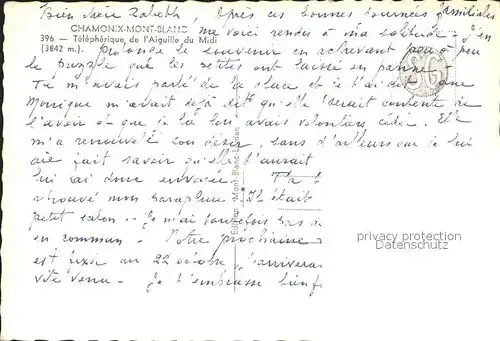 Bien chère Zabeth, Après ces bonnes journées familiales
CHAMONIX-MONT-BLANC
me voici rendue à ma solitude. J'en
396 — Téléphérique de l'Aiguille du Midi
(3842 m.).
prolonge le souvenir en achevant peu à peu
le puzzle que les petites ont laissé en panne.
Tu m'avais parlé de la place et je t'ai dit que
Monique m'avait déjà dit qu'elle serait contente de
l'avoir et que je la lui avais volontiers cédée. Elle
m'a renouvelé son désir, sans d'ailleurs que je lui
aie fait savoir qu'elle l'aurait
lui ai donc envoyée.
retrouvé mon parapluie. Il était
petit salon
en commun. Votre prochaine
est fixé au 22 octobre
vite venu. Je t'embrasse bien
Edition Mont-Blanc
privacy protection
Datenschutz